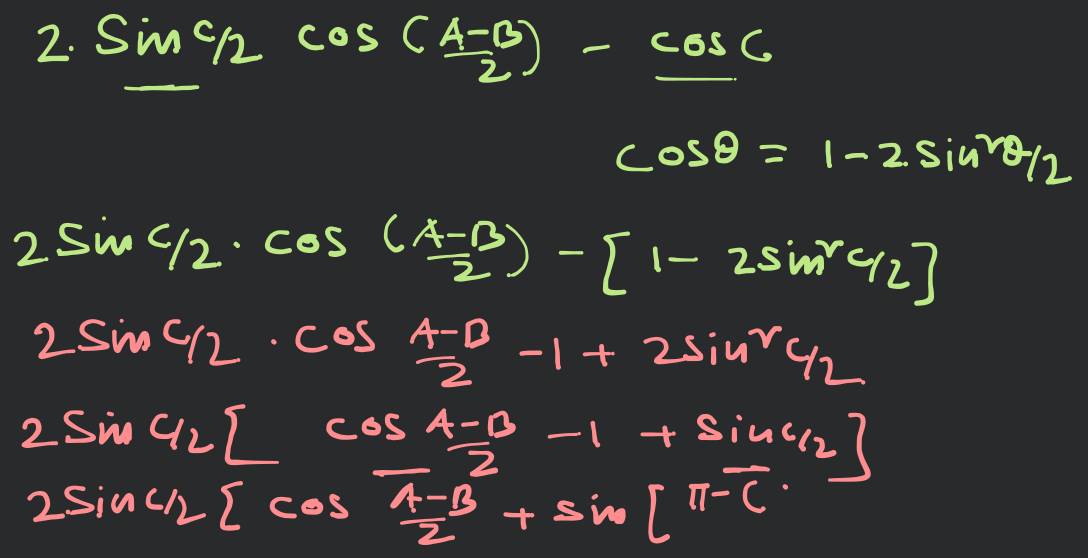 2. Sin C/2 cos (A-B/2) - cos C
cosθ = 1-2.Sin²θ/2
2 Sin C/2 . cos (A-B/2) - [1- 2sin² C/2]
2 Sin C/2 . cos A-B/2 -1 + 2sin² C/2
2 Sin C/2 [ cos A-B/2 -1 + Sin C/2]
2Sin C/2 [ cos A-B/2 + sin [ π-C